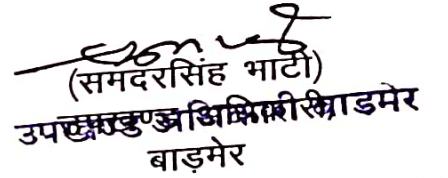 (समदरसिंह भाटी)
उपखण्ड अधिकारी बाडमेर
बाड़मेर